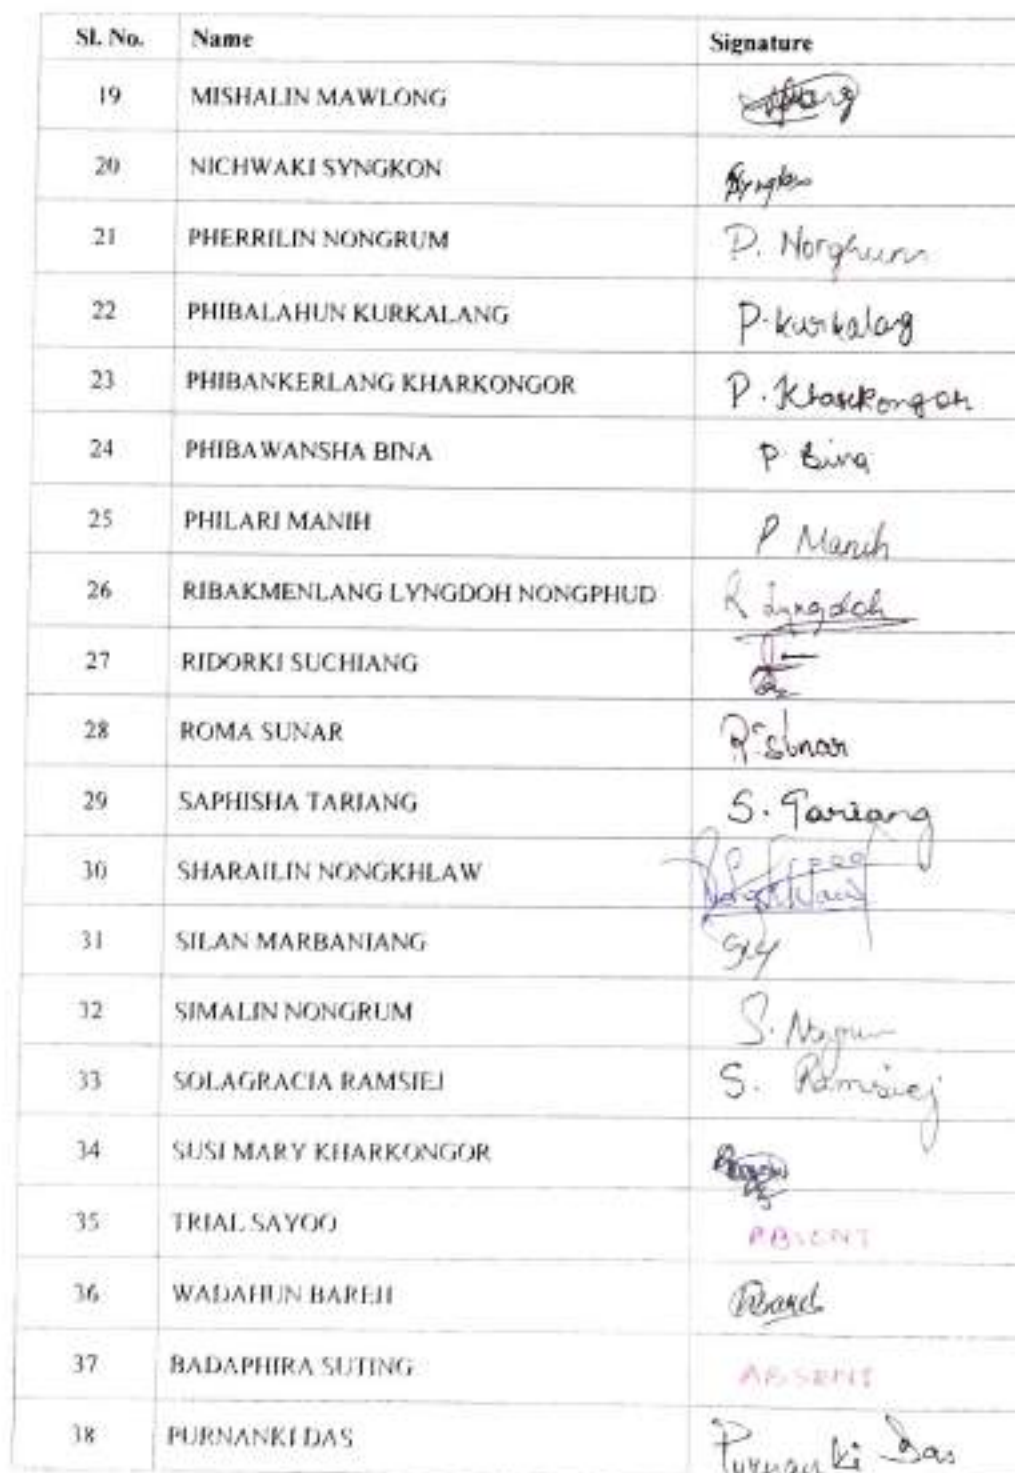 Sl. No. Name Signature
19 MISHALIN MAWLONG
20 NICHWAKI SYNGKON
21 PHERRILIN NONGRUM P. Nongrum
22 PHIBALAHUN KURKALANG P. Kurkalag
23 PHIBANKERLANG KHARKONGOR P. Kharkongor
24 PHIBAWANSHA BINA P. Bina
25 PHILARI MANIH P Manih
26 RIBAKMENLANG LYNGDOH NONGPHUD R Lyngdoh
27 RIDORKI SUCHIANG
28 ROMA SUNAR R. Sunar
29 SAPHISHA TARIANG S. Tariang
30 SHARAILIN NONGKHLAW
31 SILAN MARBANIANG
32 SIMALIN NONGRUM S.
33 SOLAGRACIA RAMSIEJ S. Ramsiej
34 SUSI MARY KHARKONGOR
35 TRIAL SAYOO ABSENT
36 WADAHUN BAREH
37 BADAPHIRA SUTING ABSENT
38 PURNANKI DAS Purnanki Das